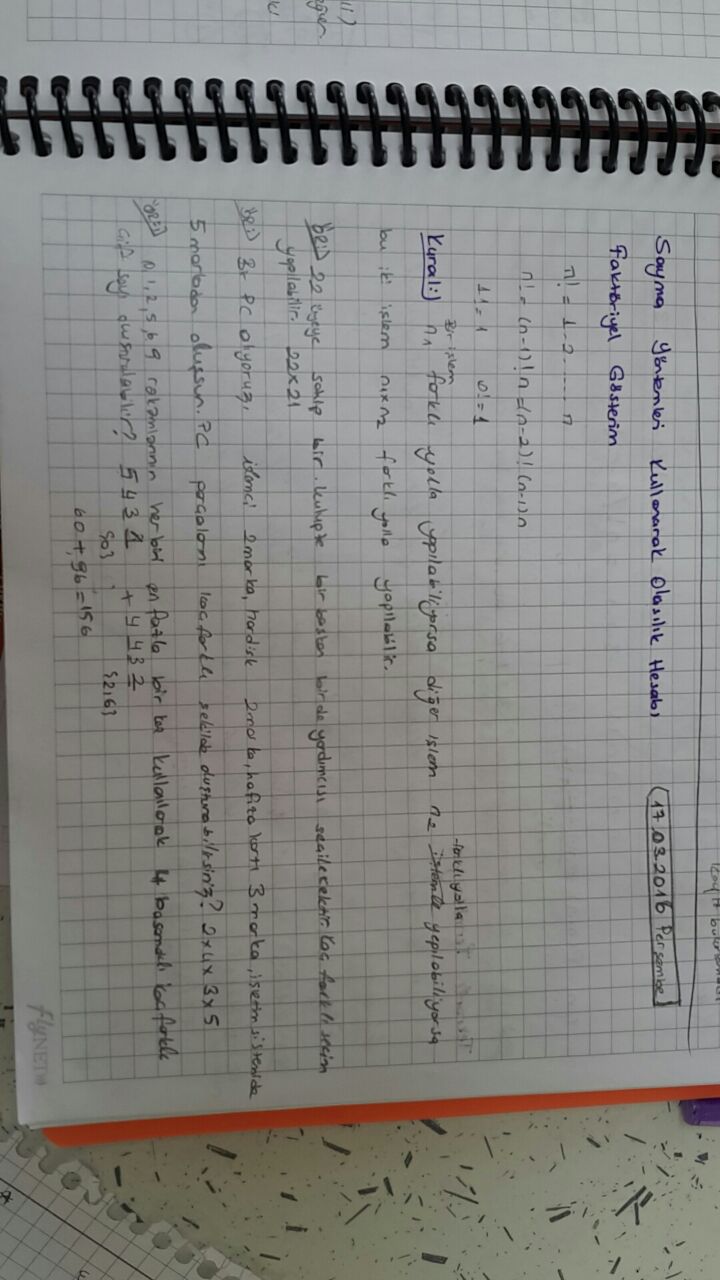 Sayma Yöntemleri Kullanarak Olasılık Hesabı
17.03.2016 Perşembe
Faktöriyel Gösterim
n! = 1.2......n
n! = (n-1)! n = (n-2)! (n-1)n
1! = 1 0! = 1
Kural:) Bir işlem n1 farklı yolla yapılabiliyorsa diğer işlem n2 farklı yolla yapılabiliyorsa
bu iki işlem n1xn2 farklı yolla yapılabilir.
22 üyeye sahip bir kulüpte bir başkan birde yardımcısı seçilecektir. kaç farklı seçim
yapılabilir. 22x21
Bir PC alıyoruz, işlemci 2 marka, hardisk marka, hafıza kartı 3 marka, işletim sistemide
5 markadan oluşsun. PC parçalarını kaç farklı şekilde oluşturabilirsiniz? 2x4x3x5
0,1,2,5,6,9 rakamlarının herbiri en fazla bir kez kullanılarak 4 basamaklı kaç farklı
çift sayı oluşturulabilir? 5 4 3 1 + 4 4 3 2
{0} {2,6}
60 + 96 = 156
flyNET